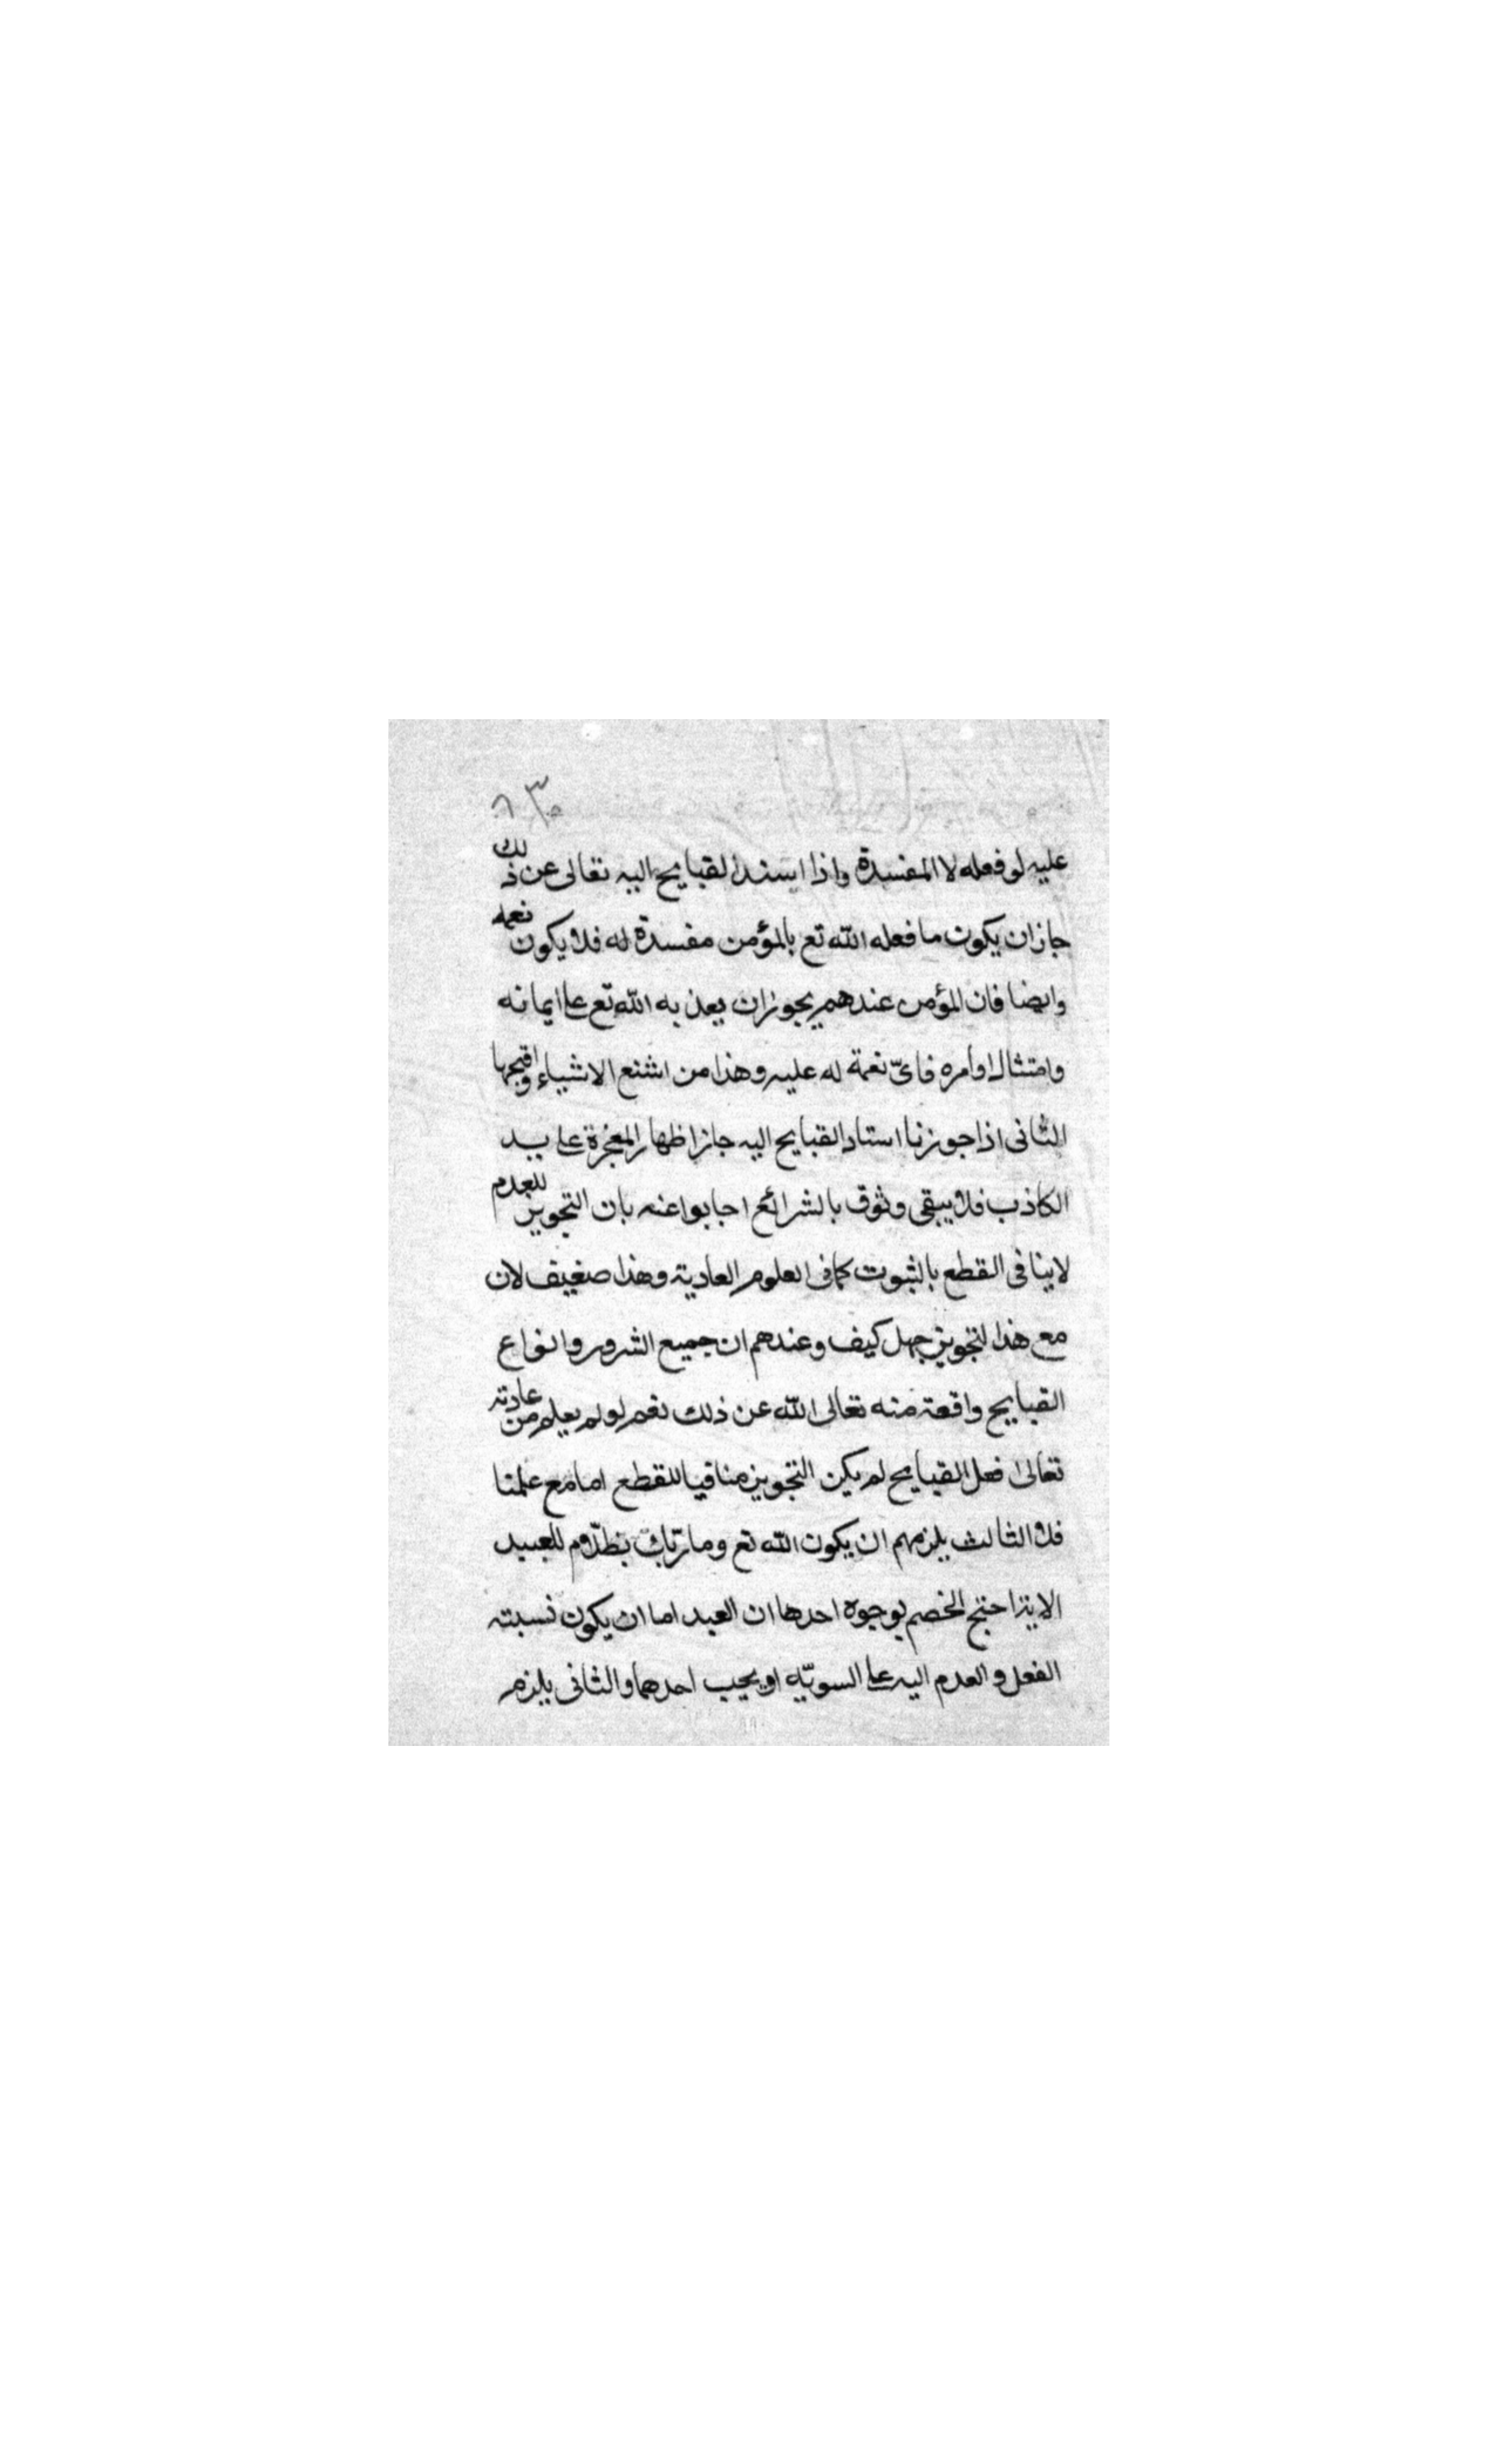 عليه لو فعله لا المفسدة واذا اسند القبايح اليه تعالى عن ذلك
جاز ان يكون ما فعله الله تع بالمؤمن مفسدة له فلا يكون نعمه
وايضا فان المؤمن عندهم يجوز ان يعذبه الله تع على ايمانه
وامتثال اوامره فاىّ نعمة له عليه وهذا من اشنع الاشياء واقبحها
الثانى اذا جوزنا استاد القبايح اليه جاز اظهار المعجزة على يد
الكاذب فلا يبقى وثوق بالشرائع اجابوا عنه بان التجويز للعدم
لاينافى القطع بالثبوت كما فى العلوم العادية وهذا ضعيف لان
مع هذا التجويز جهل كيف وعندهم ان جميع الشرور وانواع
القبايح واقعة منه تعالى الله عن ذلك نعم لو لم يعلم من عادته
تعالى فعل القبايح لم يكن التجويز منافيا للقطع اما مع علمنا
فلا الثالث يلزمهم ان يكون الله تع وما ربّك بظلّام للعبيد
الاية احتج الخصم بوجوه احدها ان العبد اما ان يكون نسبته
الفعل والعدم اليه على السويّه او يجب احدهما والثانى يلزم